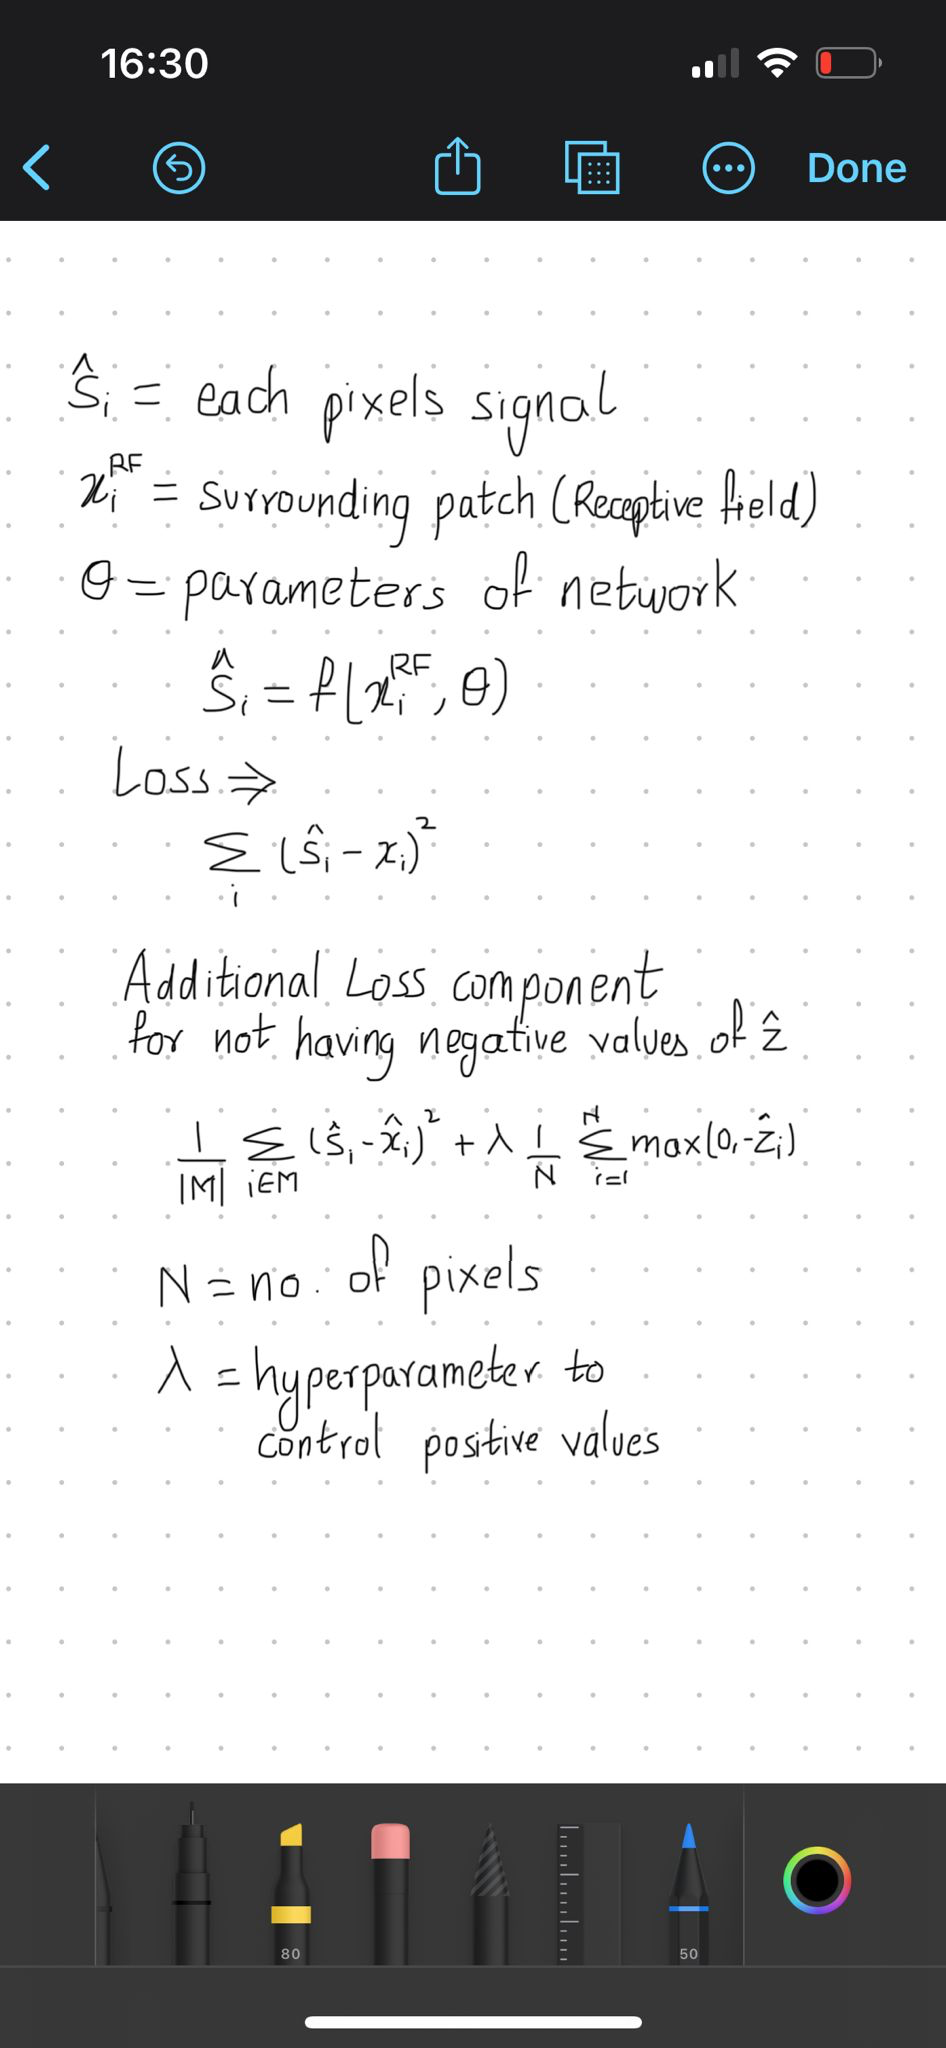 16:30
Done
ŝᵢ = each pixels signal
xᵢᴿᶠ = surrounding patch (Receptive field)
θ = parameters of network
ŝᵢ = f(xᵢᴿᶠ, θ)
Loss ⇒
∑ᵢ (ŝᵢ - xᵢ)²
Additional Loss component
for not having negative values of ẑ
1/|M| ∑_{i∈M} (ŝᵢ - x̂ᵢ)² + λ 1/N ∑_{i=1}^{N} max(0, -ẑᵢ)
N = no. of pixels
λ = hyperparameter to
control positive values
80
50